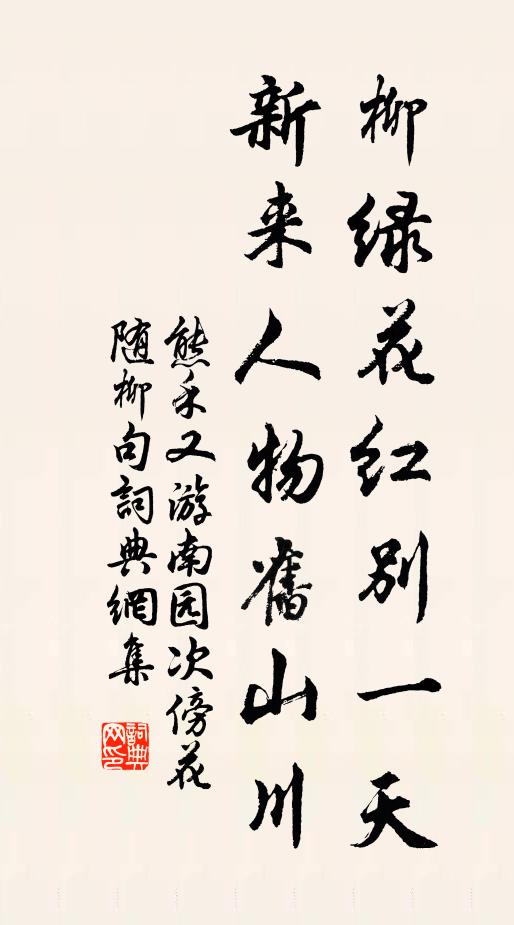 柳绿花红别一天
新来人物舊山川
熊禾又游南园次傍花
随柳句詞典網集
詞典
网印